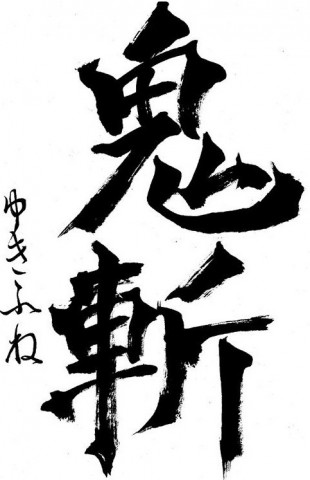 鬼斬
ゆきふね